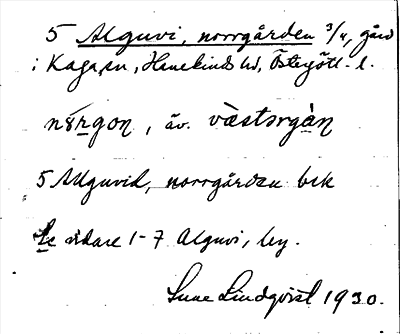 5 Alguvi, norrgården 3/4, gård
i Kaga sn, Hanekinds hd, Östergötl. l.
nǒrgon, äv. västərgàn
5 Alguvid, norrgården bek
Se vidare 1-7 Alguvi, by.
Sune Lindqvist 1930.